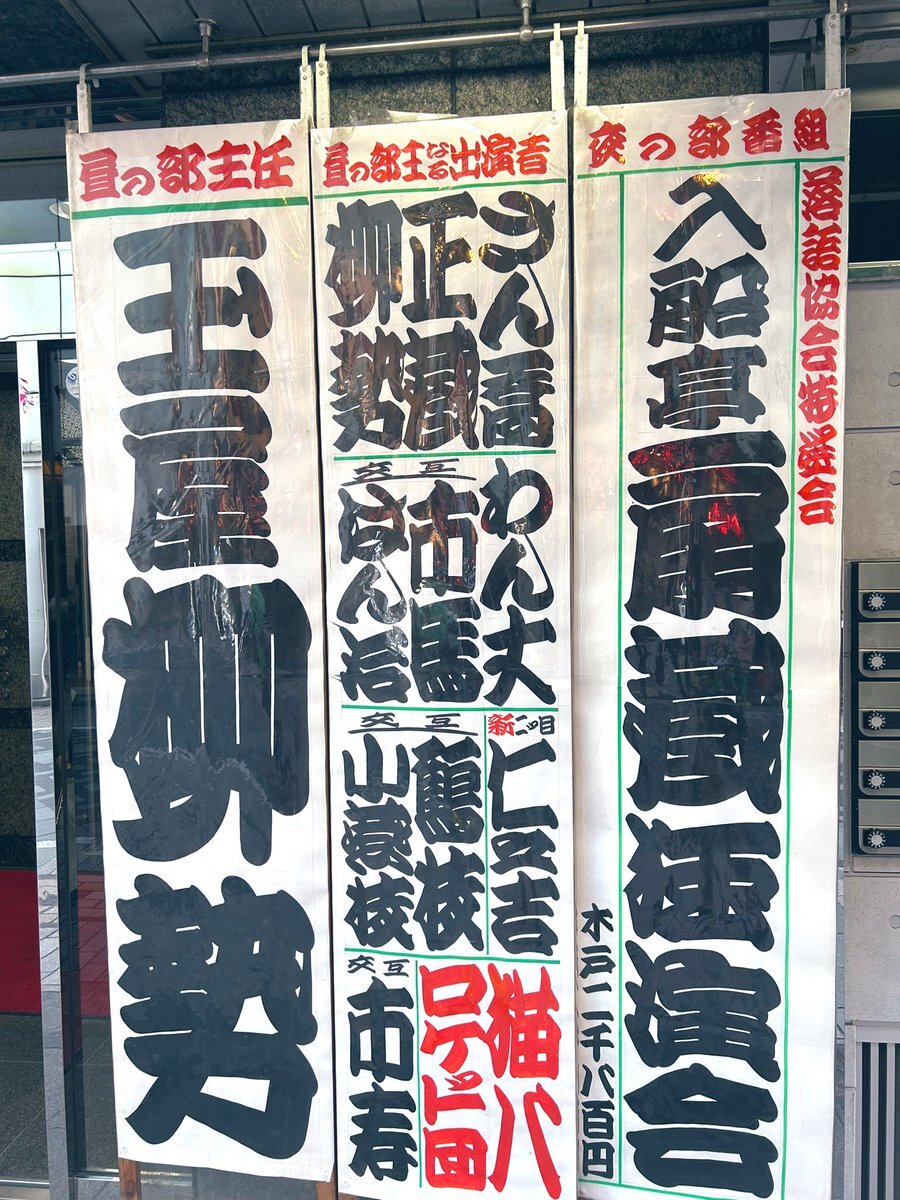 夜の部番組
落語協会特選会
入船亭扇蔵独演会
木戸二千八百円
昼の部主なる出演者
さん喬
正蔵
柳勢
わん丈
交互
市馬
はん治
新二ッ目
交互
鶴枝
小燕枝
猫八
ロケット団
交互
市寿
昼の部主任
玉屋柳勢